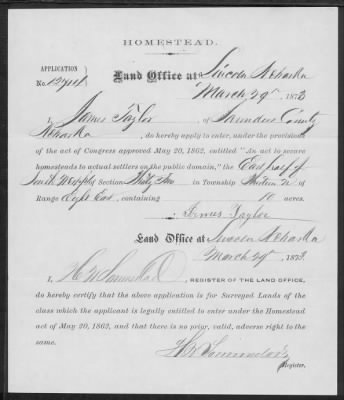 HOMESTEAD.
APPLICATION
No. 12711
Land Office at Lincoln Nebraska
March 29th 1873
I, James Taylor, of Saunders County
Nebraska, do hereby apply to enter, under the provisions
of the act of Congress approved May 20, 1862, entitled "An act to secure
homesteads to actual settlers on the public domain," the East half of
South West 1/4 of Section Thirty Two in Township Thirteen N of
Range Eight East, containing acres.
James Taylor
Land Office at Lincoln Nebraska
March 29th 1873.
I, REGISTER OF THE LAND OFFICE,
do hereby certify that the above application is for Surveyed Lands of the
class which the applicant is legally entitled to enter under the Homestead
act of May 20, 1862, and that there is no prior, valid, adverse right to the
same.
Register.